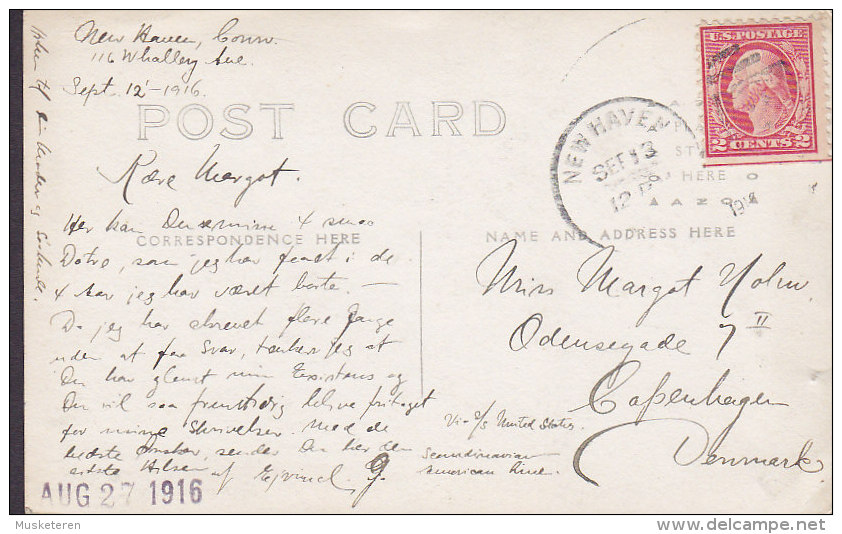 New Haven, Conn.
116 Whalley Ave.
Sept. 12' - 1916.
POST CARD
Kære Margot.
Her kan Du se mine 4 smaa
Døtre, som jeg har faaet i de
4 Aar jeg har været borte. —
Da jeg har skrevet flere Gange
uden at faa Svar, tænker jeg at
Du har glemt min Existens og
Du vil saa fremtidig blive fritaget
for mine Skrivelser. Med de
bedste Ønsker, sender Du her den
sidste Hilsen af Ejvind. G.
Hilsen til Din Moder og Søskende.
CORRESPONDENCE HERE
NAME AND ADDRESS HERE
HERE
NEW HAVEN
SEP 13
12
U.S. POSTAGE
2 CENTS 2
Miss Margot Holm
Odensegade 7 II
Copenhagen
Denmark
Via S/S United States.
Scandinavian
American Line.
AUG 27 1916
Musketeren
delcampe.net